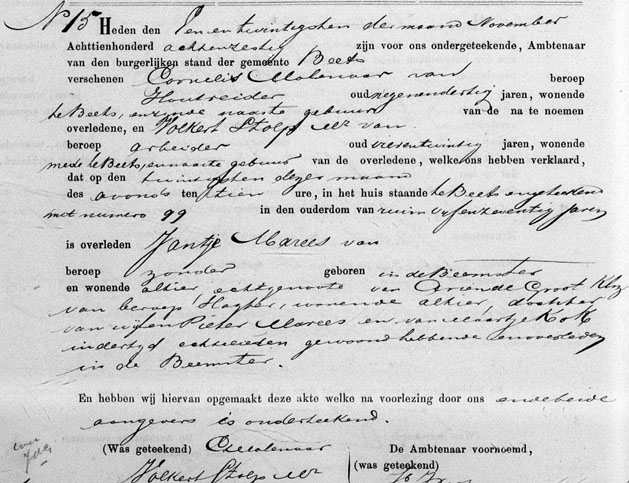 No 15 Heden den Een en twintigsten der maand November
Achttienhonderd achtenzestig zijn voor ons ondergeteekende, Ambtenaar
van den burgerlijken stand der gemeente Beets
verschenen Cornelis Molenaar van beroep
Houtreider oud negenendertig jaren, wonende
te Beets, en zynde naaste gebuur van de na te noemen
overledene, en Volkert Stolp Mz van
beroep arbeider oud zesentwintig jaren, wonende
mede te Beets, en naaste gebuur van de overledene, welke ons hebben verklaard,
dat op den twintigsten dezer maand
des avonds ten tien ure, in het huis staande te Beets en geteekend
met numero 99 in den ouderdom van ruim vyfenzeventig jaren
is overleden Jantje Marees van
beroep zonder geboren in de Beemster
en wonende alhier, echtgenoote van Arien de Groot Klz
van beroep, wonende alhier, dochter
van wijlen Pieter Marees en van Maartje Kok
indertyd echtelieden gewoond hebbende en overleden
in de Beemster.
En hebben wij hiervan opgemaakt deze akte welke na voorlezing door ons en de beide
aangevers is onderteekend.
(Was geteekend) C Molenaar De Ambtenaar voornoemd,
Volkert Stolp Mz (was geteekend)